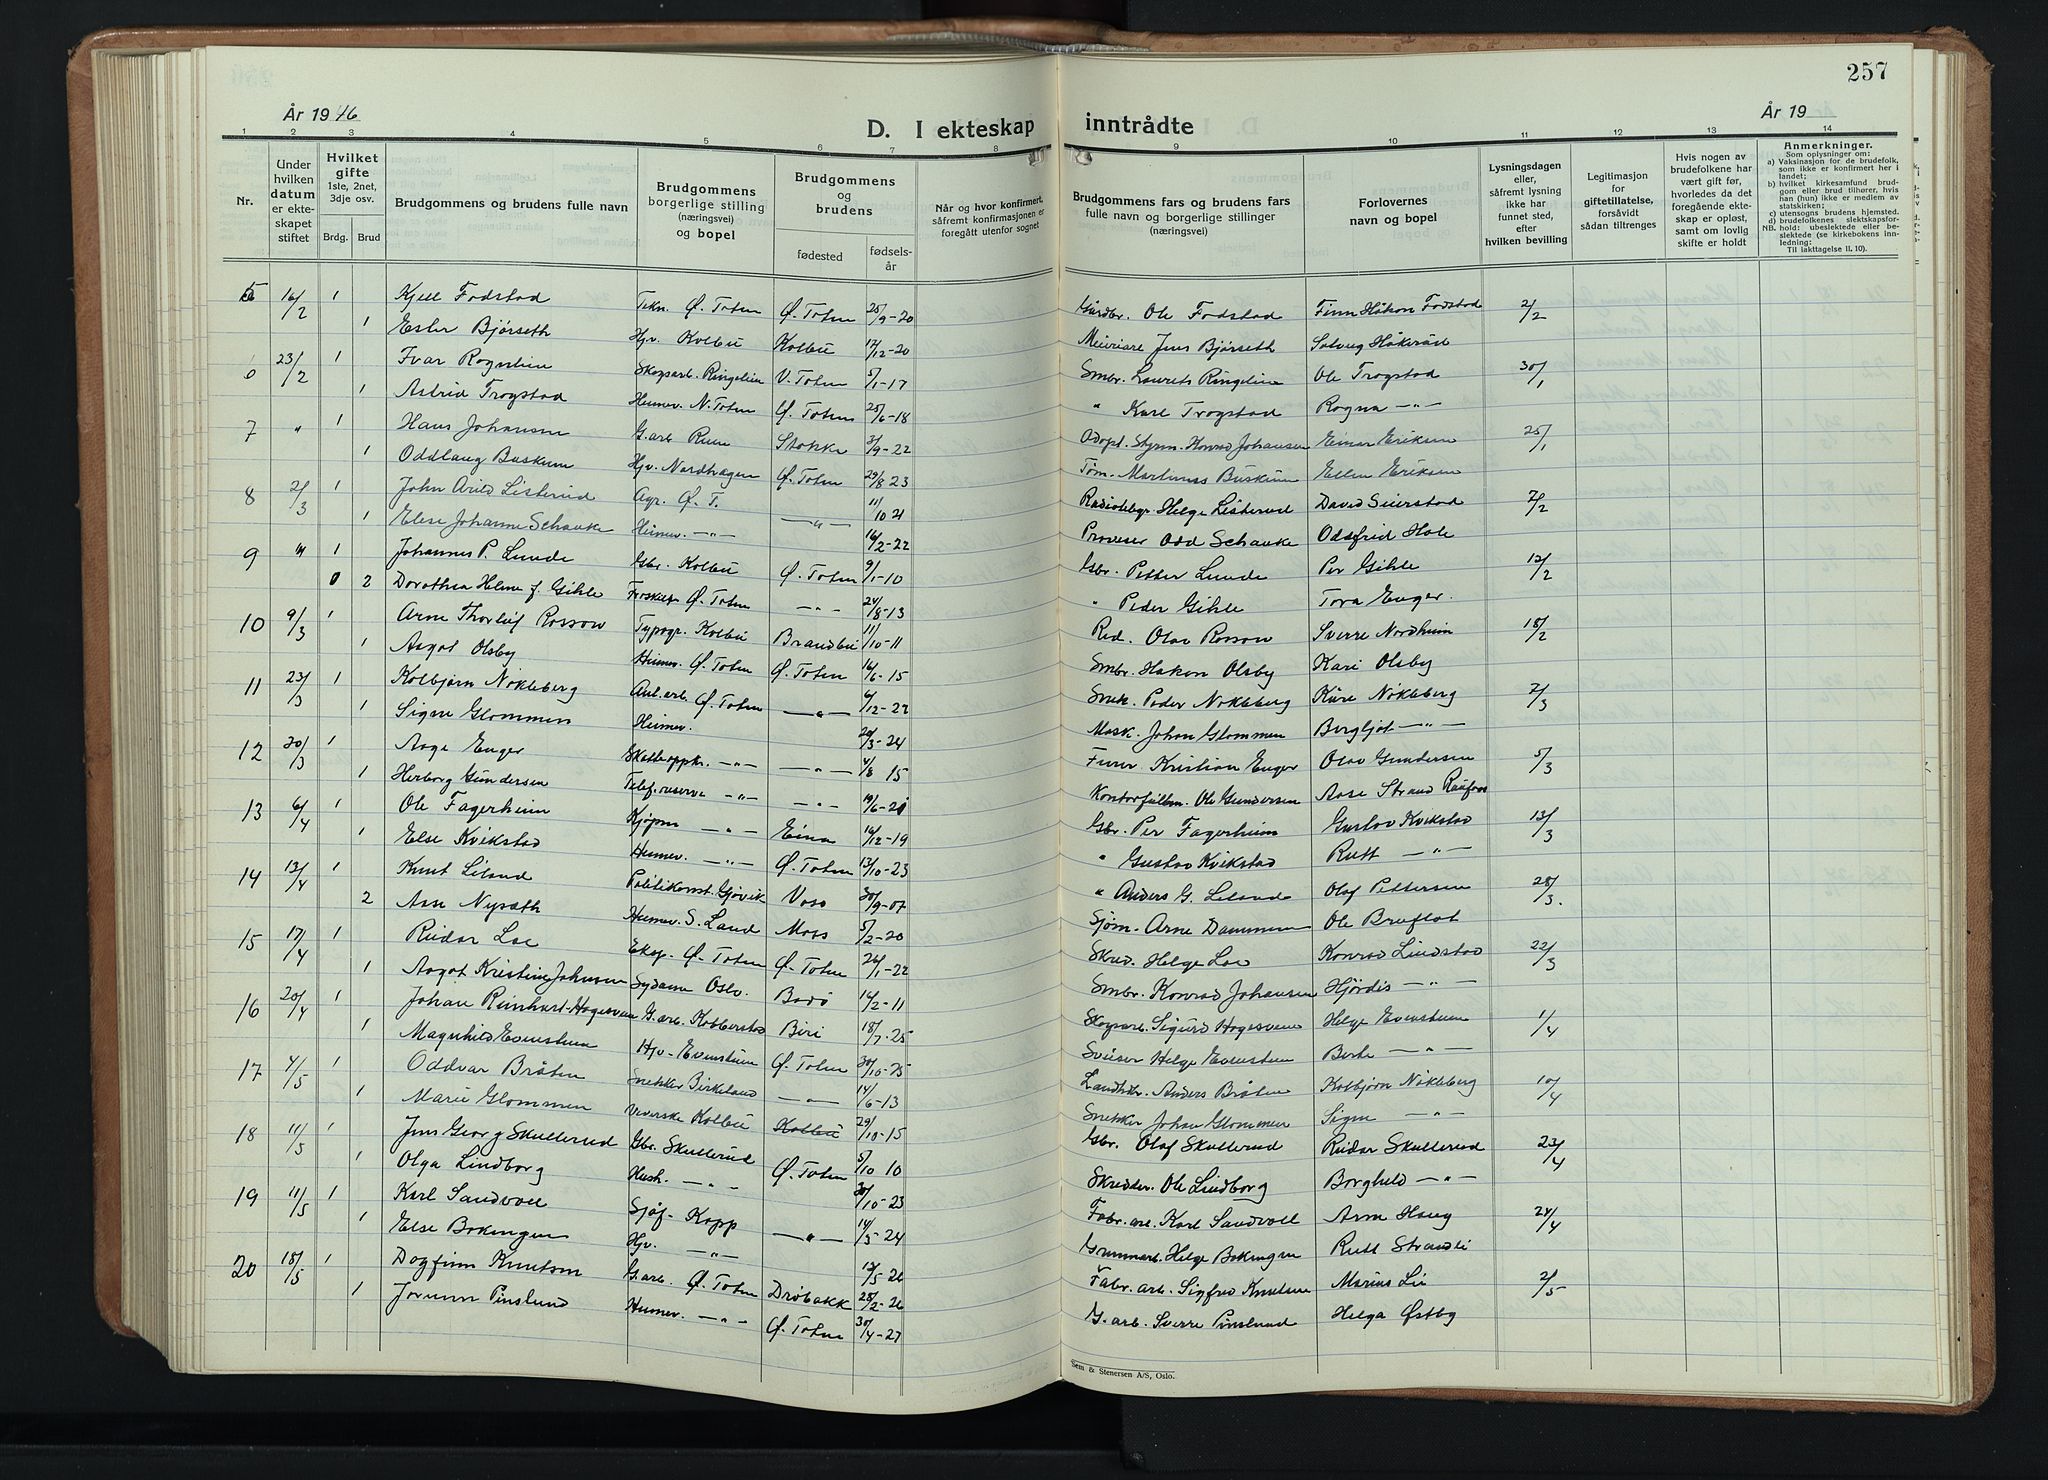 257
År 1946
D. I ekteskap inntrådte
År 19
1 2 3 4 5 6 7 8 9 10 11 12 13 14
Nr.
Under hvilken datum er ekteskapet stiftet
Hvilket gifte 1ste, 2net, 3dje osv.
Brdg. Brud
Brudgommens og brudens fulle navn
Brudgommens borgerlige stilling (næringsvei) og bopel
Brudgommens og brudens
fødested
fødsels-år
Når og hvor konfirmert, såfremt konfirmasjonen er foregått utenfor sognet
Brudgommens fars og brudens fars fulle navn og borgerlige stillinger (næringsvei)
Forlovernes navn og bopel
Lysningsdagen eller, såfremt lysning ikke har funnet sted, efter hvilken bevilling
Legitimasjon for giftetillatelse, forsåvidt sådan tiltrenges
Hvis nogen av brudefolkene har vært gift før, hvorledes da det foregående ekteskap er opløst, samt om lovlig skifte er holdt
Anmerkninger.
Som oplysninger om:
a) Vaksinasjon for de brudefolk, som ikke er konfirmert her i landet;
b) hvilket kirkesamfund brudgom eller brud tilhører, hvis han (hun) ikke er medlem av statskirken;
c) utensogns brudens hjemsted.
d) brudefolkenes slektskapsforhold: ubeslektede eller beslektede (se kirkebokens innledning:
NB. Til iakttagelse II. 10).
5 16/2 1 Kjell Fodstad Tekn. Ø. Toten Ø. Toten 25/9-20 Gårdbr. Ole Fodstad Finn Håkon Fodstad 2/2
1 Ester Bjørseth Hjv. Kolbu Kolbu 17/12-20 Meieriare Jens Bjørseth Solveig
6 23/2 1 Ivar Rognlien Skogsarb. Ringelien V. Toten 5/1-17 Smbr. Laurits Ringelien Ole Trogstad 30/1
1 Astrid Trogstad Heimev. N. Toten Ø. Toten 25/6-18 " Karl Trogstad Rogna —"—
7 " 1 Hans Johansen G.arb. Stokke 3/9-22 Adopt. Styrm. Konrad Johansen Einar Eriksen 25/1
1 Oddlaug Buskum Hjv. Nordhagen Ø. Toten 29/8 23 Tøm. Martinus Buskum Ellen Eriksen
8 2/3 1 John Arild Listerud Agr. Ø. T. —"— 11/10 21 Radiotelegr. Helge Listerud David Seierstad 7/2
1 Else Johanne Schauke Heimev. —"— 16/2-22 Proviser Odd Schauke Oddfrid Hole
9 " 1 Johannes P. Lunde Gbr. Kolbu Ø. Toten 9/1-10 Gbr. Petter Lunde Per Gihle 12/2
0 2 Dorothea Helene f. Gihle Ø. Toten —"— 24/8-13 " Peder Gihle Tora Enger.
10 9/3 1 Arne Thorleif Rossow Typogr. Kolbu Brandbu 11/10-11 Red. Olav Rossow Sverre Nordheim 18/2
1 Aagot Olsby Heimev. Ø. Toten Ø. Toten 16/6-15 Smbr. Hakon Olsby Kari Olsby
11 23/3 1 Kolbjørn Nøkleberg Anl.arb. Ø. Toten —"— 6/12-22 Snek. Peder Nøkleberg Kåre Nøkleberg 2/3
1 Signe Glommen Heimev. 20/3-24 Mask. Johan Glommen Bergljot —"—
12 30/3 1 Aage Enger Skatteoppkr. —"— —"— 4/8 15 Furer Kristian Enger Olav Gundersen 5/3
1 Herborg Gundersen Telef.reserve —"— —"— 19/6-21 Kontorfullm. Ole Gundersen Aase Strand Raufoss
13 6/4 1 Ole Fagerheim Kjøpm —"— Eina 16/12-19 Gbr. Per Fagerheim Gustav Kvikstad 13/3
1 Else Kvikstad Heimev. —"— Ø. Toten 13/10-23 " Gustav Kvikstad Rutt —"—
14 13/4 1 Knut Liland Politikonst. Gjøvik Voss 30/9-07 " Anders G. Liland Olaf Pettersen 28/3.
2 Aase Nyseth Heimev. S. Land Moss 5/2-20 Sjøm. Arne Dammen Ole Bruflot
15 17/4 1 Reidar Loe Eksp. Ø. Toten Ø. Toten 26/1-22 Skred. Helge Loe Konrad Lindstad 22/3
1 Aagot Kristine Johansen Sydame Oslo. Bodø 14/2-11 Smbr. Konrad Johansen Hjørdis —"—
16 20/4 1 Johan Reinhart Hagesveen G.arb. Kobberstad Biri 18/7-25 Skogsarb. Sigurd Hagesveen Helge Evensteen 1/4
1 Magnhild Evensteen Hjv. Evensteen Ø. Toten 30/10-25 Sveiser Helge Evensteen Berte —"—
17 4/5 1 Oddvar Bråten Snekker Birkeland —"— 14/6-13 Landhdr. Anders Bråten Kolbjørn Nøkleberg 10/4
1 Marie Glommen Veverske Kolbu Kolbu 29/10-15 Snekker Johan Glommen Signe —"—
18 11/5 1 Jens Georg Skullerud Gbr. Skullerud Ø. Toten 5/10 10 Gbr. Olaf Skullerud Reidar Skullerud 23/4
1 Olga Lindborg Hush. —"— 30/10-23 Skredder. Ole Lindborg Borghild —"—
19 11/5 1 Karl Sandvoll Sjåf. Kapp —"— 14/3-24 Fabr.arb. Karl Sandvoll Arne Haug 24/4
1 Else Bakingen Hjv. —"— 12/5-26 Helge Bakingen Rutt Strandli
20 18/5 1 Dagfinn Knutsen G.arb. Ø. Toten Drøbakk 25/2-26 Fabr.arb. Sigfred Knutsen Marius Lie 2/5
1 Jorunn Pinslund Heimev. —"— Ø. Toten 30/4-27 G.arb. Sverre Pinslund Helga Østby
Sem & Stenersen A/S, Oslo.